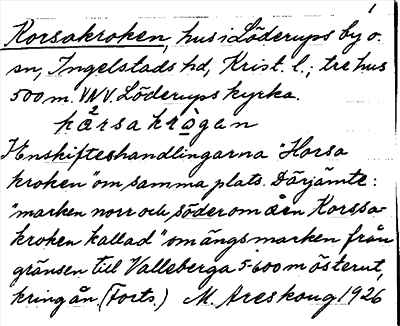 1
Korsakroken, hus i Löderups by o.
sn, Ingelstads hd, Krist. l.; tre hus
500 m. VNV. Löderups kyrka.
kårsakrågan
I Enskifteshandlingarna "Horsa
kroken" om samma plats. Därjämte:
"marken norr och söder om åen Korssa-
kroken kallad" om ängsmarken från
gränsen till Valleberga 5-600 m österut,
kring ån. (Forts.) M. Areskoug 1926